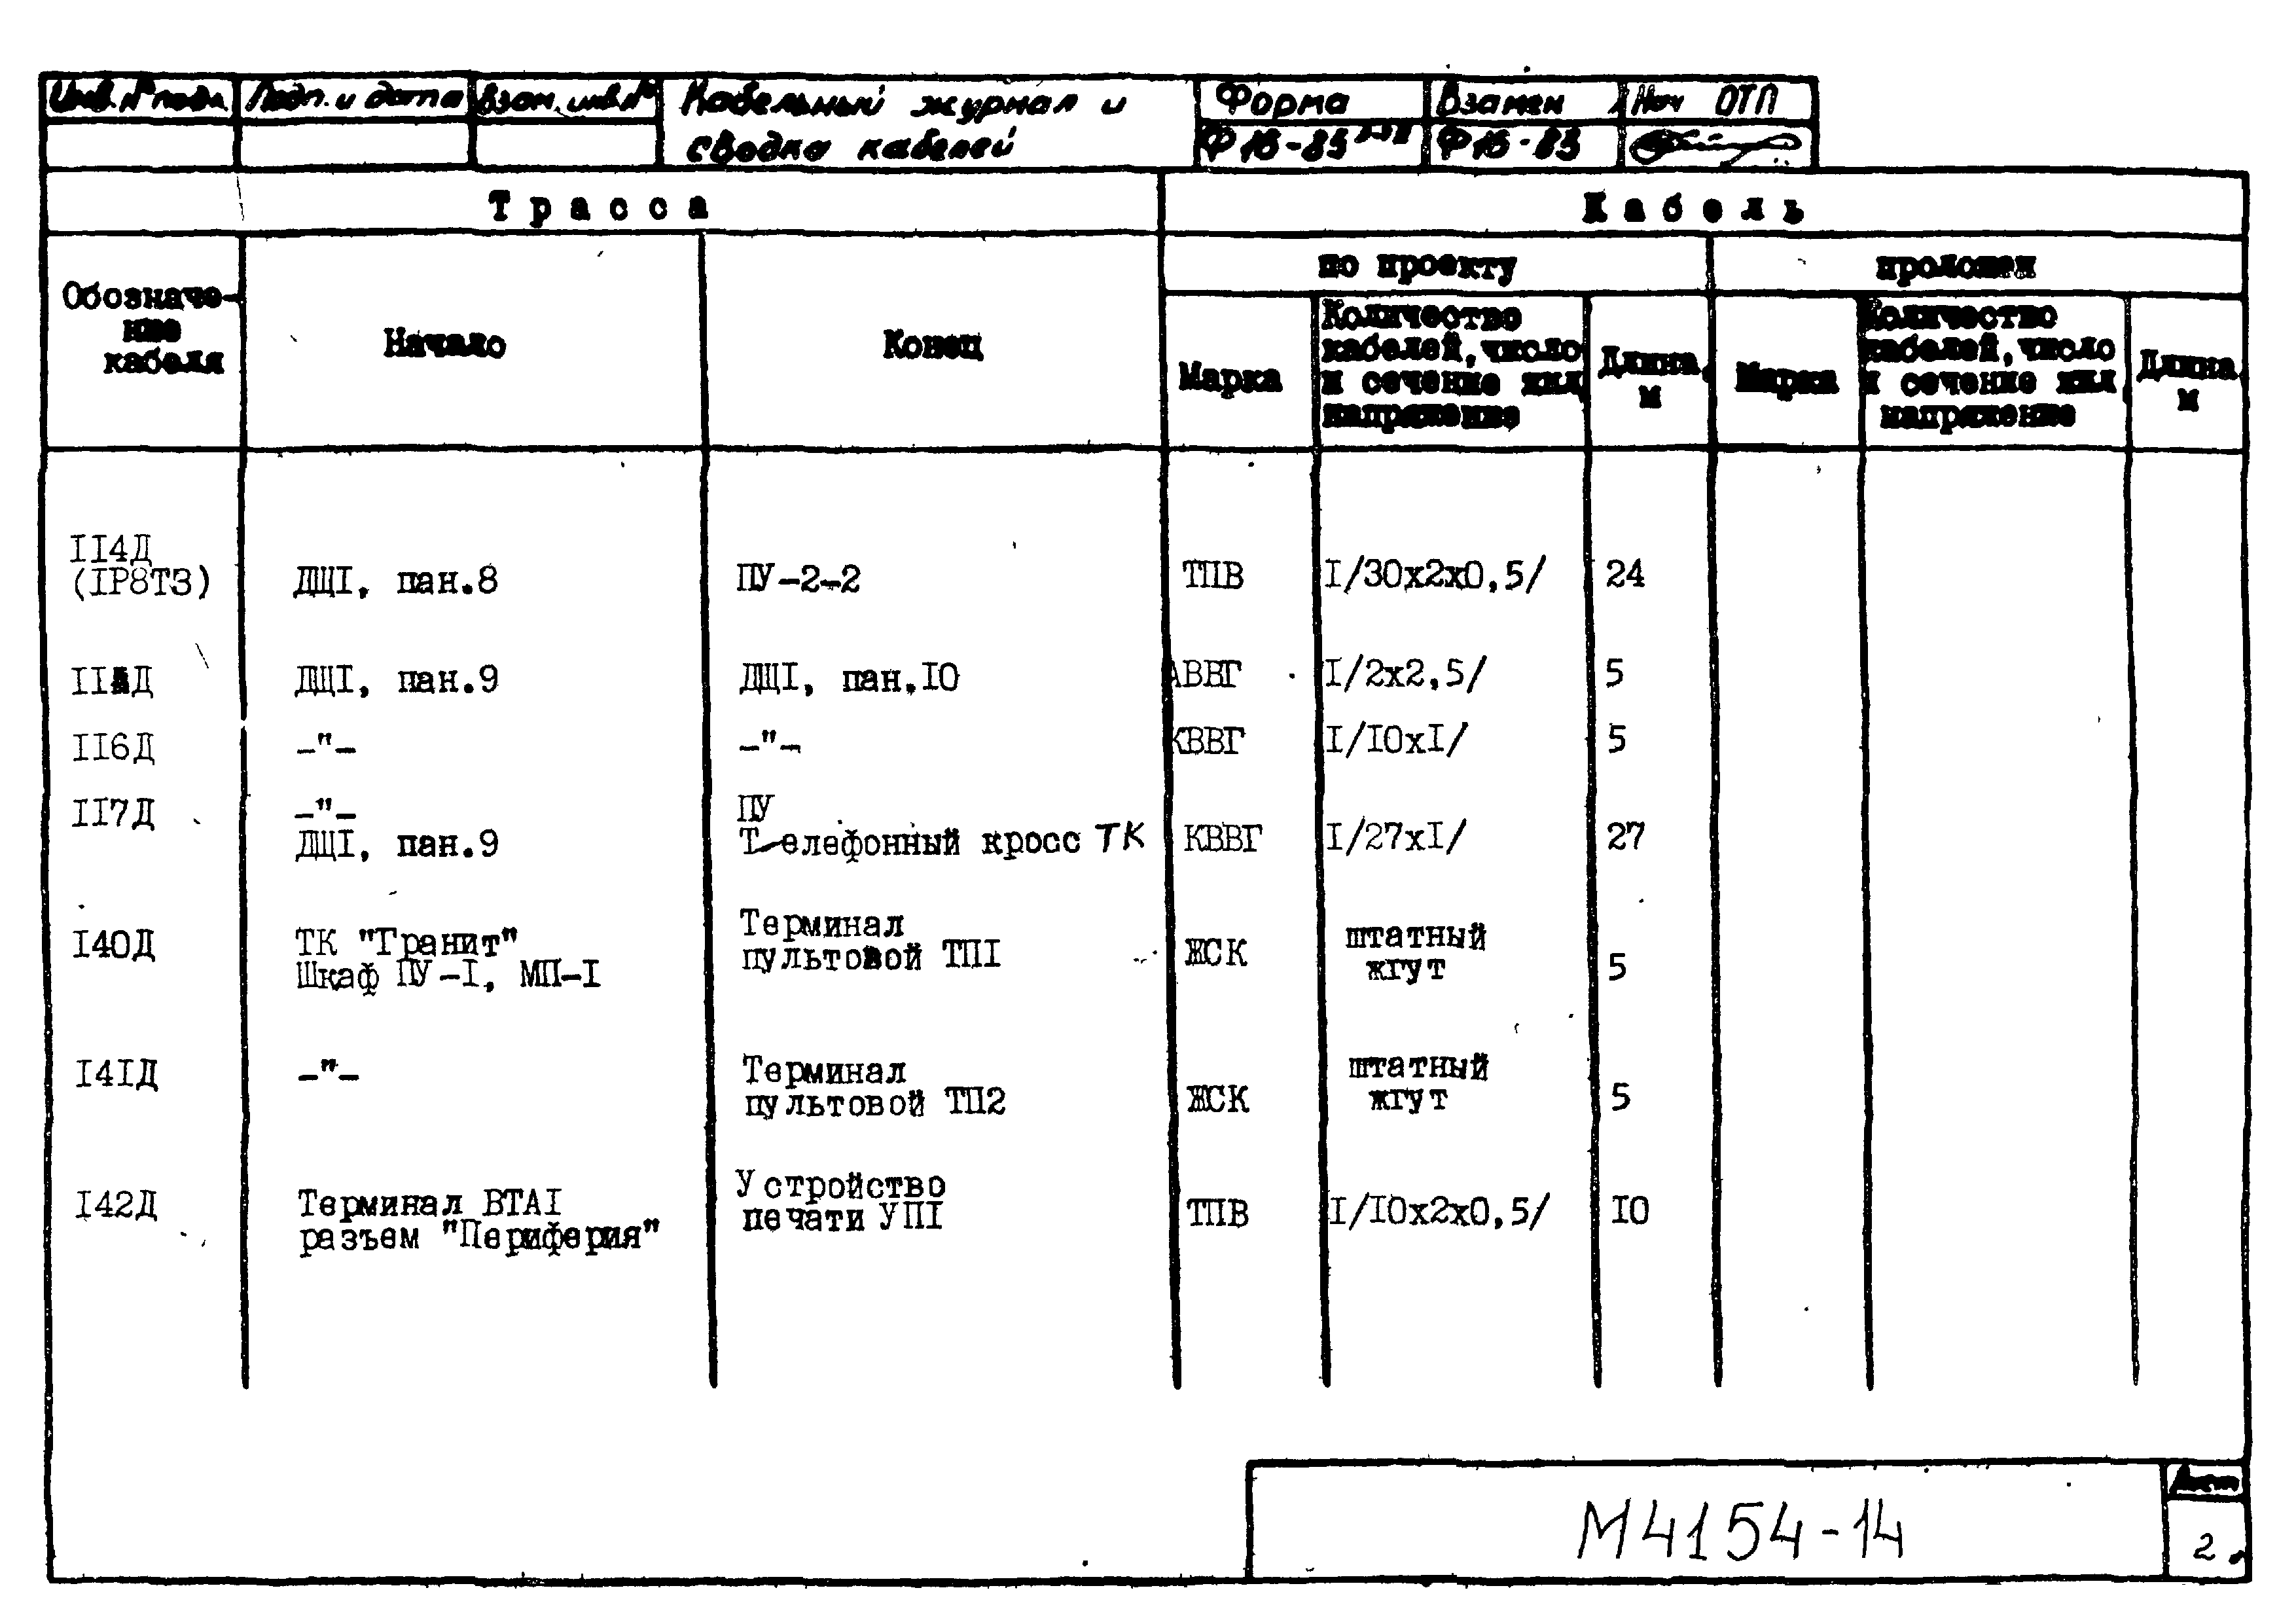 Инв. № подл. Подп. и дата Взам. инв. № Кабельный журнал и Форма Взамен Нач ОТП
сводка кабелей Ф 16-83 Ф 16-83
Трасса Кабель
по проекту проложен
Обозначе-
ние
кабеля
Начало
Конец
Марка
Количество
кабелей, число
и сечение жил
напряжение
Длина
м
Марка
Количество
кабелей, число
и сечение жил
напряжение
Длина
м
II4Д
(IP8T3) ДЩI, пан.8 ПУ-2-2 ТПВ I/30х2х0,5/ 24
ДЩI, пан.9 ДЩI, пан.I0 АВВГ I/2х2,5/ 5
II6Д -"- -"- КВВГ I/I0хI/ 5
II7Д -"- ПУ
ДЩI, пан.9 Телефонный кросс ТК КВВГ I/27хI/ 27
I40Д ТК "Гранит" Терминал штатный
Шкаф ПУ-I, МП-I пультовой ТПI ЖСК жгут 5
I4IД -"- Терминал штатный
пультовой ТП2 ЖСК жгут 5
I42Д Терминал ВТАI Устройство ТПВ I/I0х2х0,5/ I0
разъем "Периферия" печати УПI
М4154-14
Лист
2